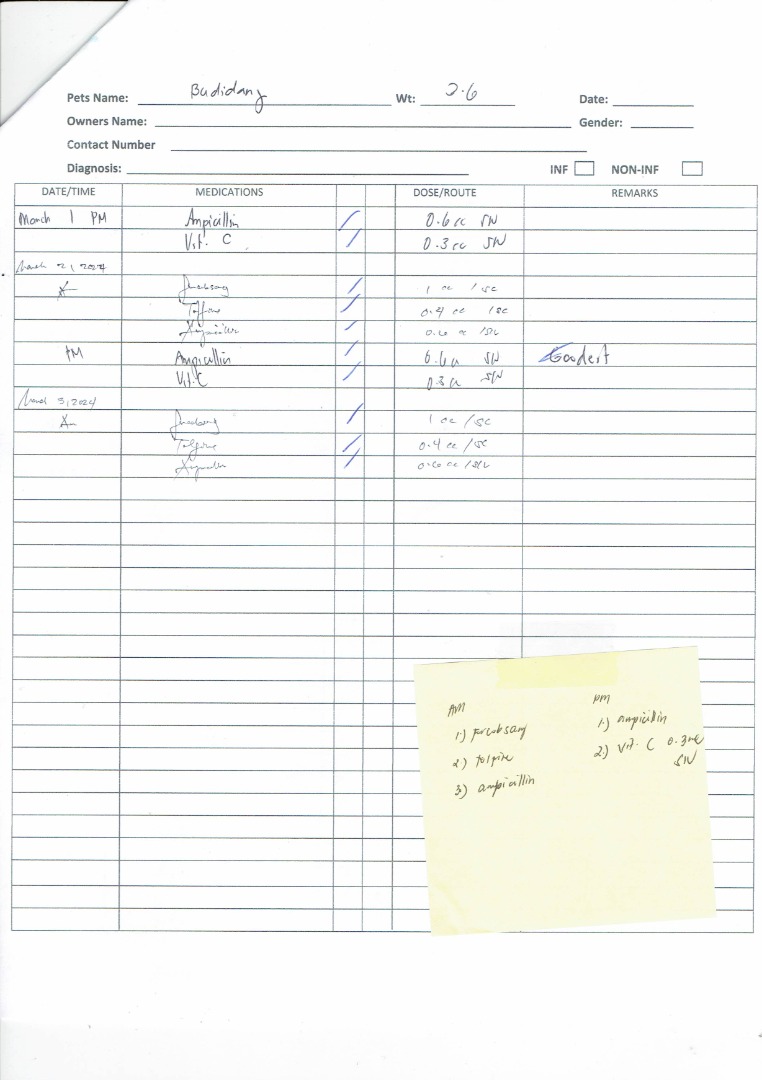 Pets Name: Budidang Wt: 2.6 Date:
Owners Name: Gender:
Contact Number
Diagnosis: INF NON-INF
DATE/TIME MEDICATIONS DOSE/ROUTE REMARKS
March 1 PM Ampicillin / 0.6 cc SIV
Vit. C / 0.3 cc SIV
March 2, 2024
/ 1 cc / SC
/ 0.4 cc / SC
/ 0.6 cc / SIV
PM Ampicillin / 0.6 cc SIV
Vit. C / 0.3 cc SIV
March 3, 2024
/ 1 cc / SC
Tolfine / 0.4 cc / SC
/ 0.6 cc / SIV
AM
1.)
2.)
3.) ampicillin
PM
1.) ampicillin
2.) Vit. C 0.3
SIV